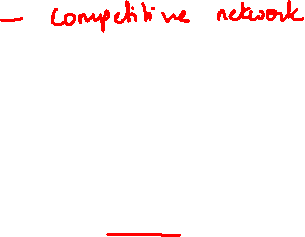 - competitive network